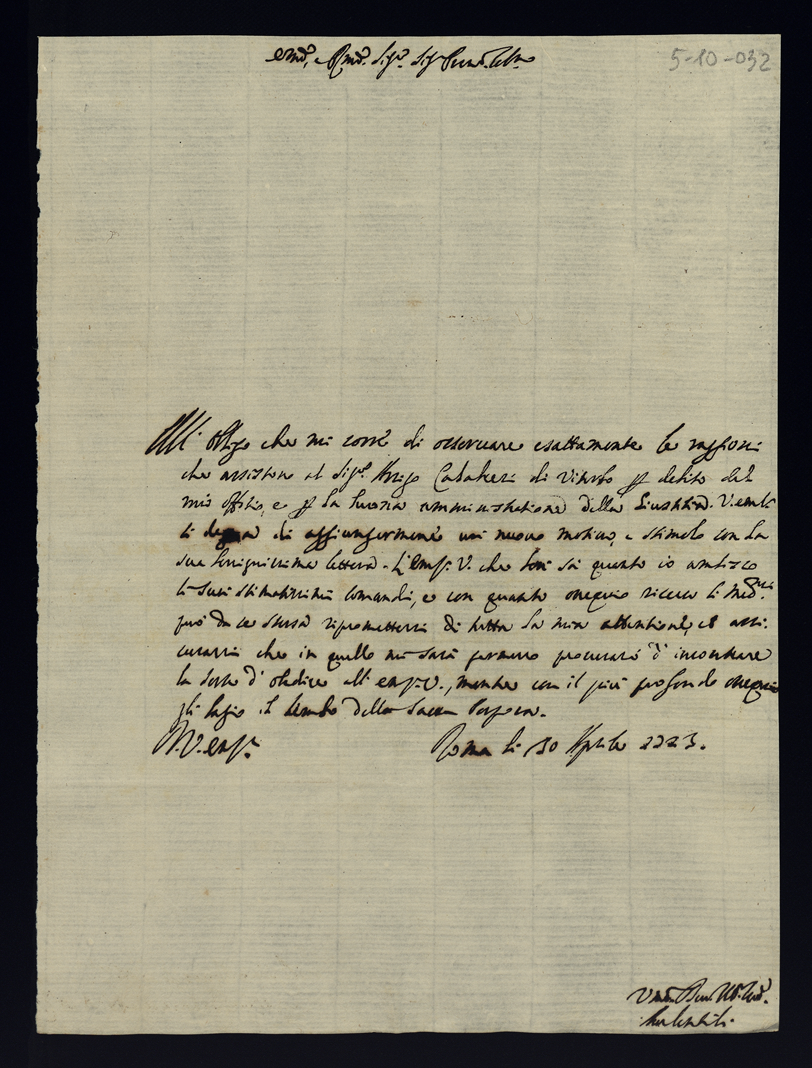 Em.o, e R.mo Sig.r Sig.r
5-10-032
All' obligo che mi corre di osservare esattamente le raggioni
che assistono al Sig.r Arrigo di Viterbo p debito del
mio offitio, e p la buona amministratione della Giustitia. V. Em.za
si degna di aggiungermene un nuovo motivo, e stimolo con la
sua benignissima lettera. L'Em.za V. che ben sà quanto io ambisco
li suoi stimatissimi comandi, e con quanto ossequio riceva li med.mi
può da se stessa ripromettersi di tutta la mia attentione, et assi-
curarsi che in quello mi sarà permesso procurarò d' incontrare
la sorte d' obedire all' Em.za V., mentre con il più profondo ossequio
gli bagio il lembo della Sacra Porpora.
D. V. Em.za
Roma li 30 Aprile 1723.